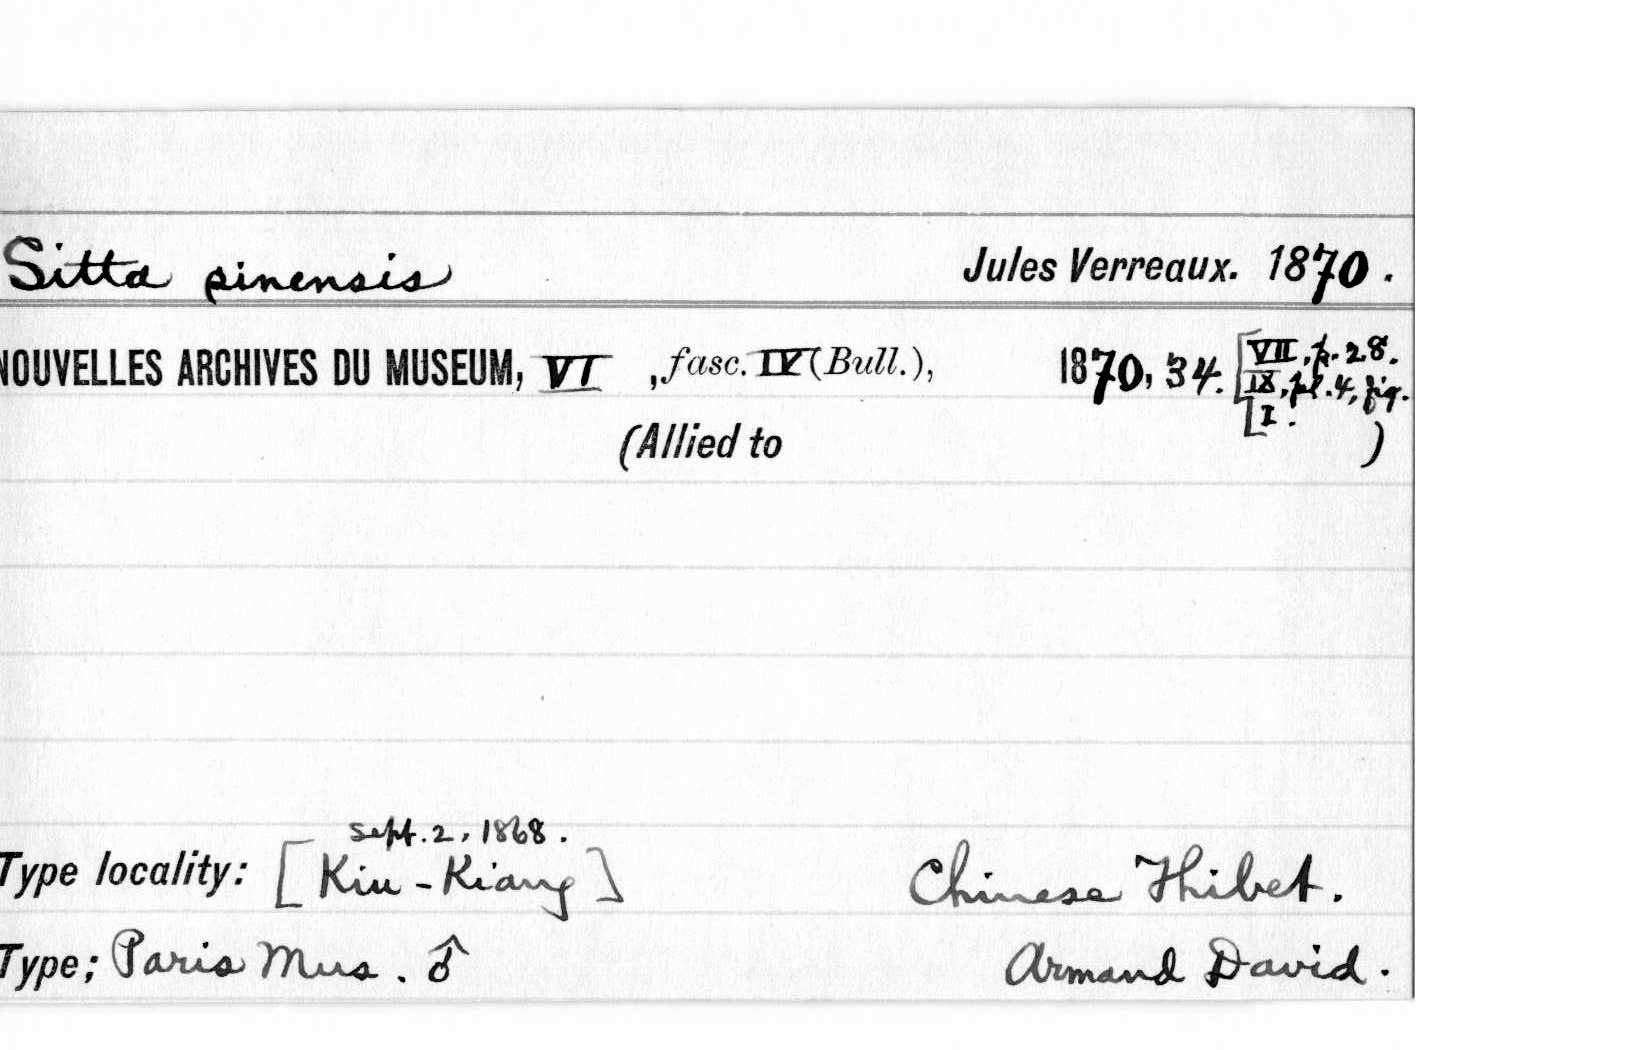 Sitta sinensis Jules Verreaux. 1870.
NOUVELLES ARCHIVES DU MUSEUM, VI, fasc. IV (Bull.), 1870, 34. [VII, p. 28.
[IX, pl. 4, fig.
[I.
(Allied to )
Sept. 2, 1868.
Type locality: [Kiu-Kiang] Chinese Thibet.
Type; Paris Mus. ♂ Armand David.